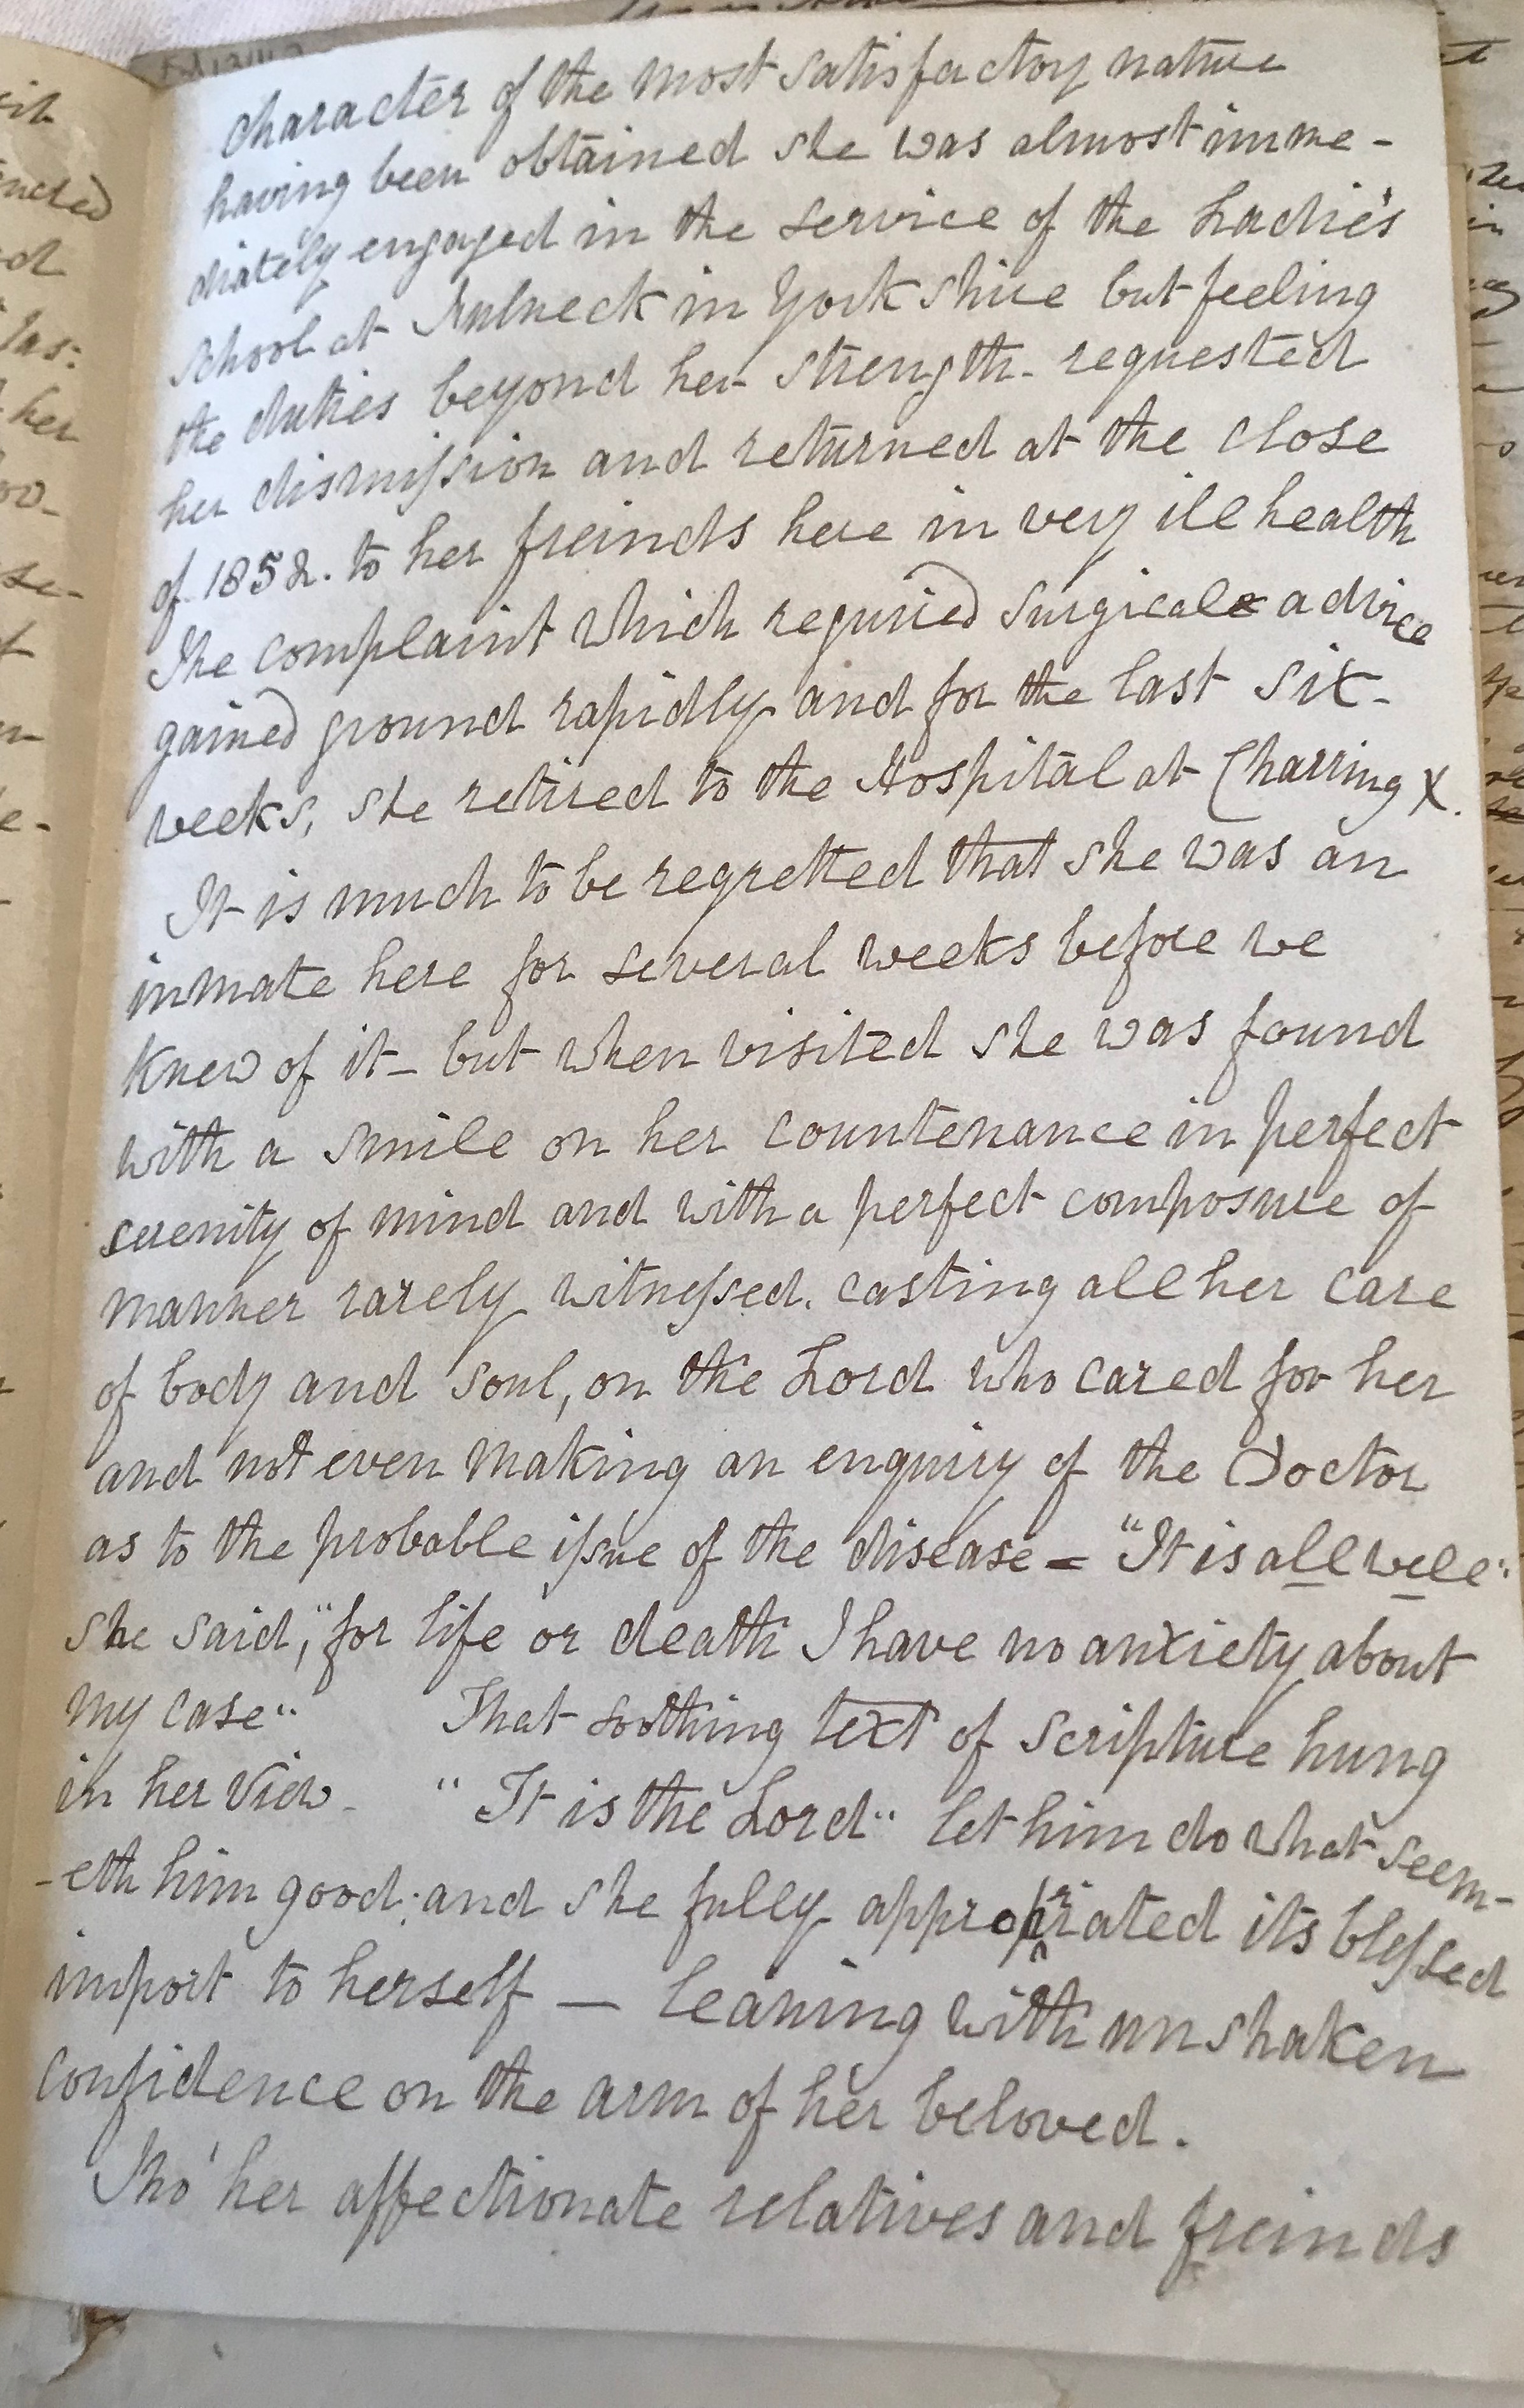 character of the most satisfactory nature
having been obtained she was almost imme-
diately engaged in the service of the Ladie's
School at Fulneck in Yorkshire but feeling
the duties beyond her strength - requested
her dismission and returned at the close
of 1852. to her freinds here in very ill health
The complaint which required Surgical advice
gained ground rapidly and for the last six-
weeks, she retired to the Hospital at Charring X.
It is much to be regretted that she was an
inmate here for several weeks before we
knew of it - but when visited she was found
with a smile on her countenance in perfect
serenity of mind and with a perfect composure of
manner rarely witnessed. casting all her care
of body and soul, on the Lord who cared for her
and not even making an enquiry of the Doctor
as to the probable issue of the disease = "It is all well"
she said, "for life or death I have no anxiety about
my case" That soothing text of scripture hung
in her view - "It is the Lord" let him do what seem-
-eth him good; and she fully appropriated its blessed
import to herself — leaning with unshaken
confidence on the arm of her beloved.
Tho' her affectionate relatives and freinds
her